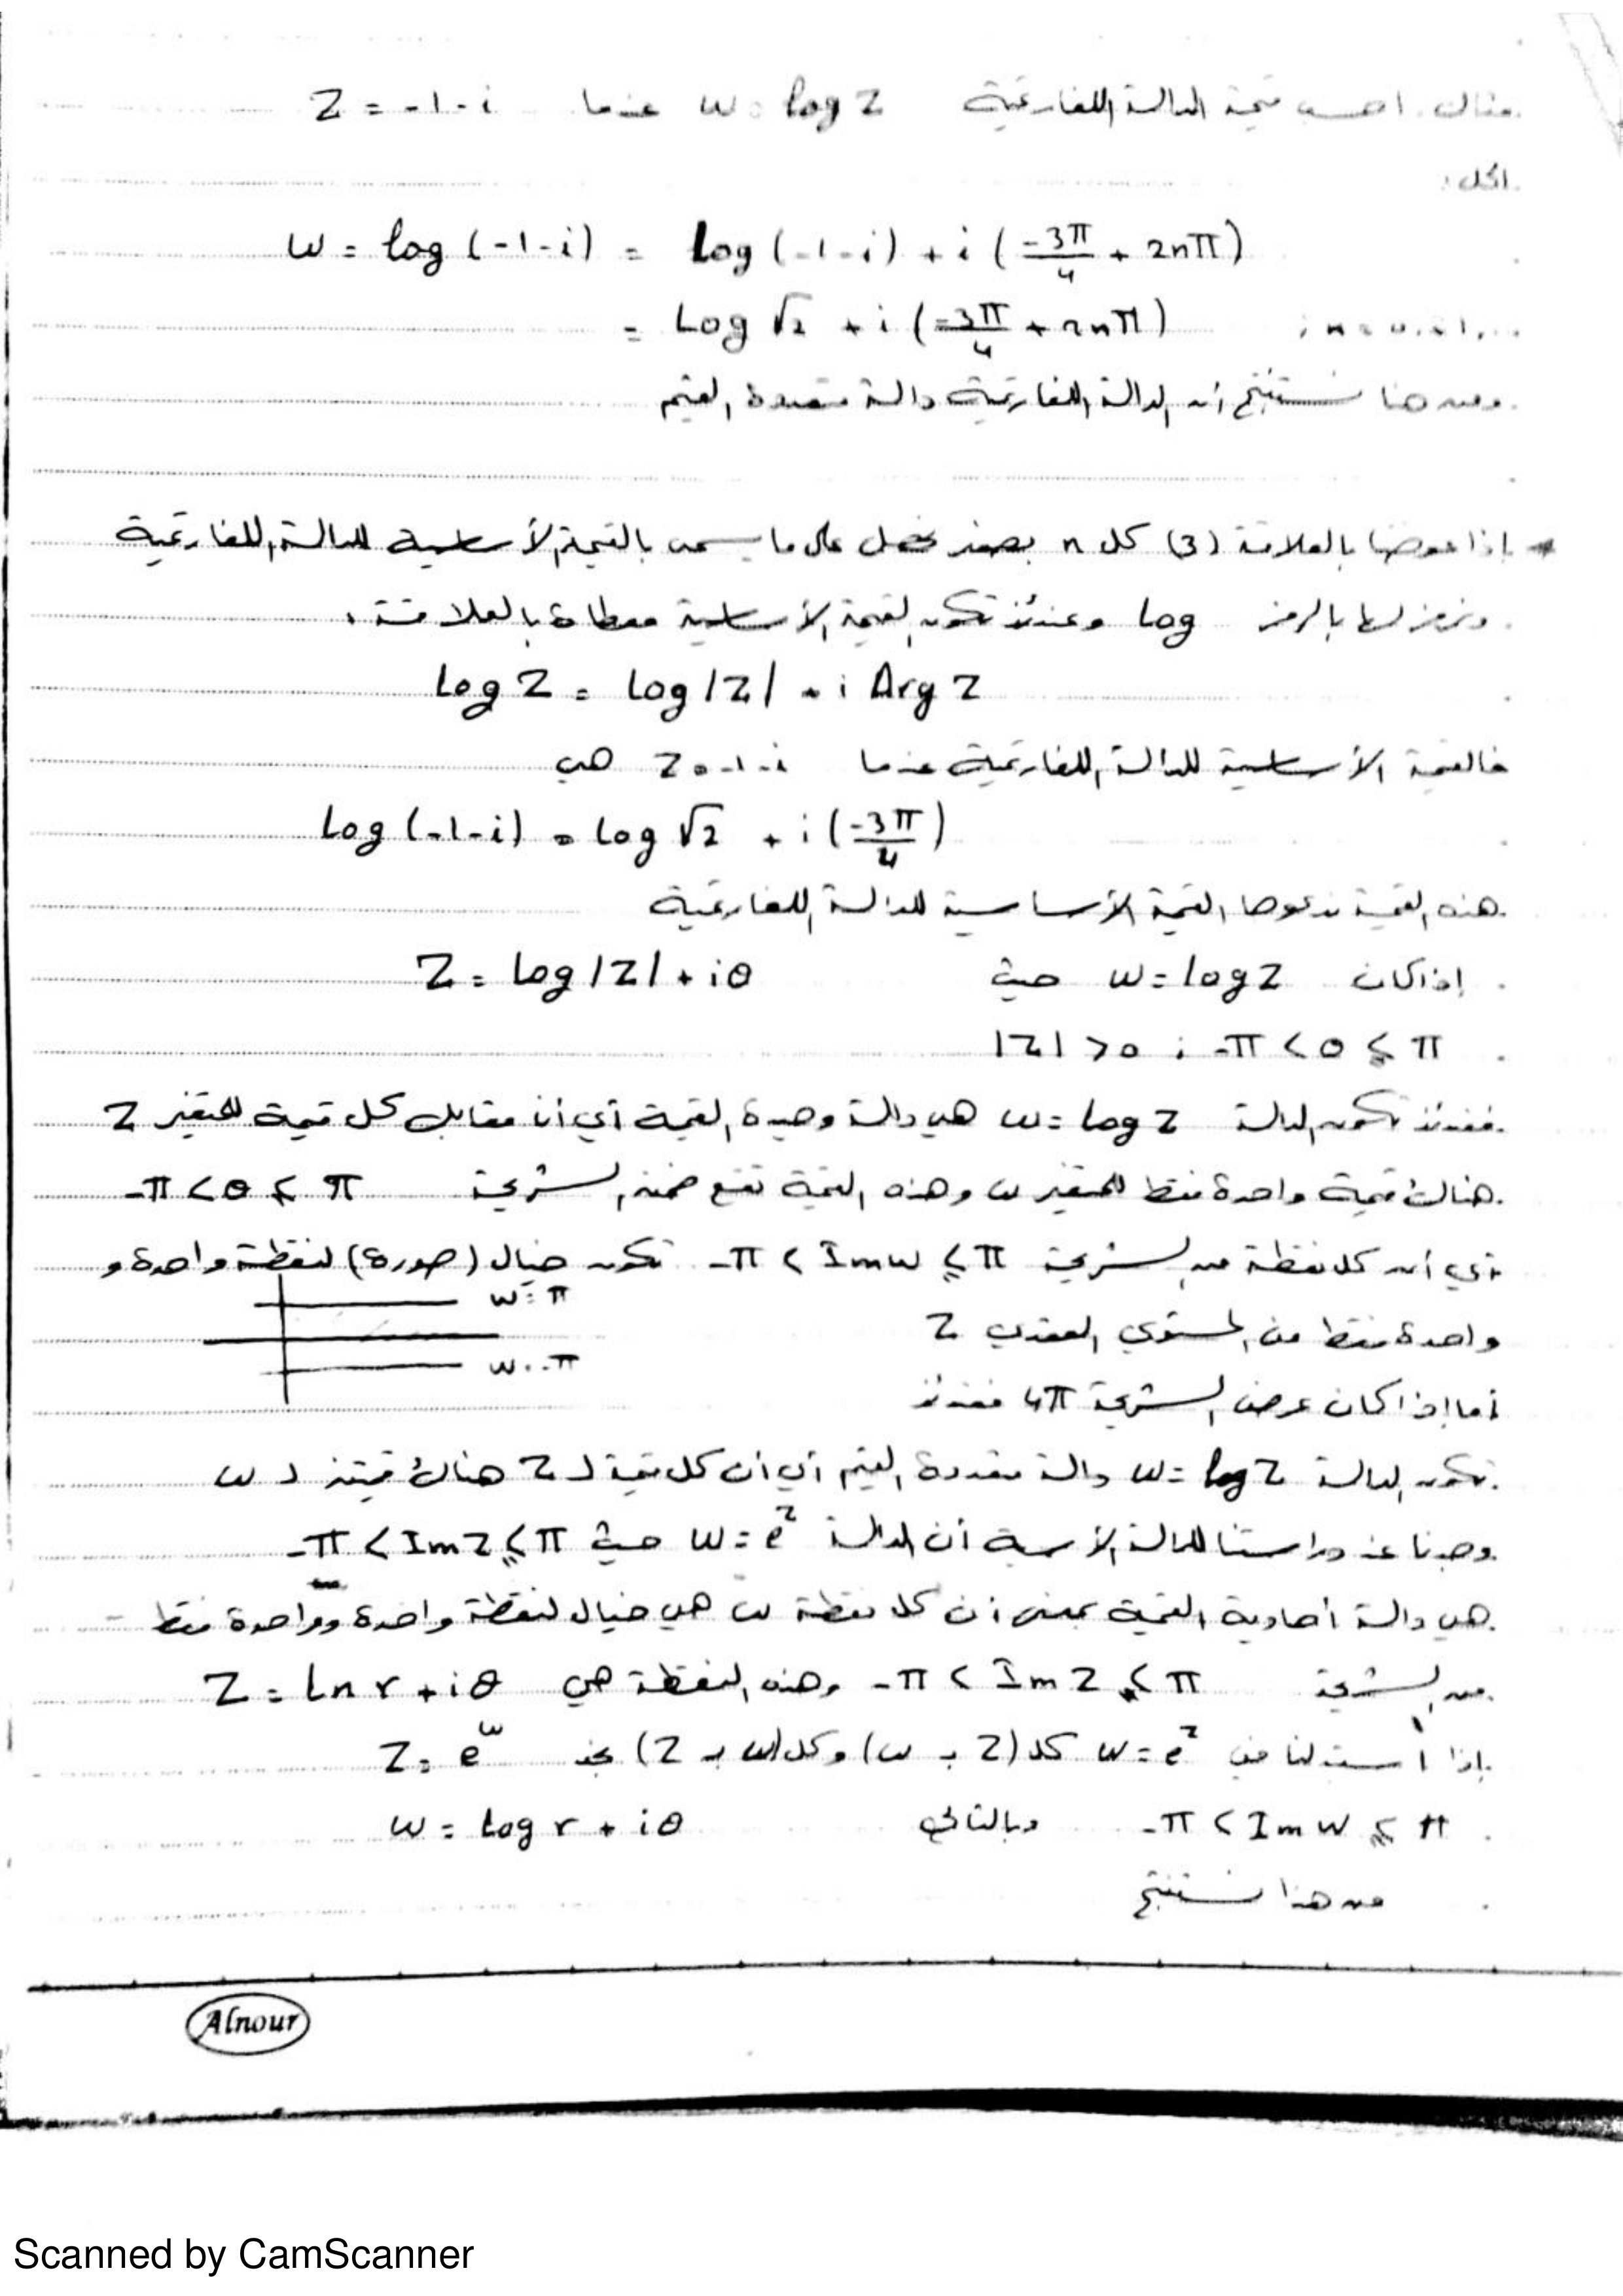 مثال. احسب قيمة الدالة اللغارتمية w = log z عندما z = -1-i
الحل:
w = log (-1-i) = Log (-1-i) + i (-3π/4 + 2nπ)
= Log √2 + i (-3π/4 + 2nπ) ; n = 0, ±1, ...
ومن هنا نستنتج أن الدالة اللغارتمية دالة متعددة القيم
إذا عوضنا بالعلاقة (3) كل n بصفر نحصل على ما يسمى بالقيمة الأساسية للدالة اللغارتمية
ونرمز لها بالرمز Log وعندئذ تكون القيمة الأساسية معطاة بالعلاقة:
Log z = Log |z| + i Arg z
فالقيمة الأساسية للدالة اللغارتمية عندما z = -1-i هي
Log (-1-i) = Log √2 + i (-3π/4)
هذه القيمة ندعوها القيمة الأساسية للدالة اللغارتمية
إذا كان w = log z حيث z = Log |z| + iθ
|z| > 0 ; -π < θ ≤ π
فعندئذ تكون الدالة w = Log z هي دالة وحيدة القيمة أي أن مقابل كل قيمة للمتغير z
هناك قيمة واحدة فقط للمتغير w وهذه القيمة تقع ضمن الشريحة -π < θ ≤ π
أي أن كل نقطة من الشريحة -π < Im w ≤ π تكون خيال (صورة) لنقطة واحدة و
w = π
واحدة فقط من المستوي العقدي z
w = -π
أما إذا كان عرض الشريحة 4π فعندئذ
تكون الدالة w = log z دالة متعددة القيم أي أن كل قيمة لـ z هناك قيمتين لـ w
وجدنا عند دراستنا للدالة الأسية أن الدالة w = e^z حيث -π < Im z ≤ π
هي دالة أحادية القيمة بمعنى أن كل نقطة w هي خيال لنقطة واحدة وواحدة فقط
من الشريحة -π < Im z ≤ π وهذه النقطة هي z = Ln r + iθ
إذا استبدلنا في w = e^z كل (z بـ w) وكل (w بـ z) نجد z = e^w
-π < Im w ≤ π وبالتالي w = Log r + iθ
من هذا نستنتج
Alnour
Scanned by CamScanner